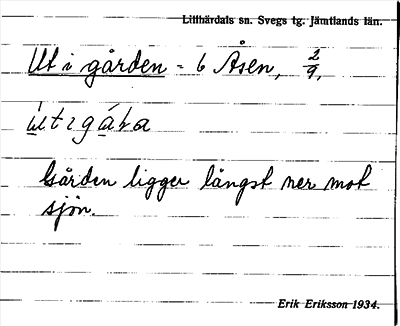 Lillhärdals sn. Svegs tg. Jämtlands län.
Ut i gården = 6 Åsen, 2/9.
Gården ligger längst ner mot
sjön.
Erik Eriksson 1934.